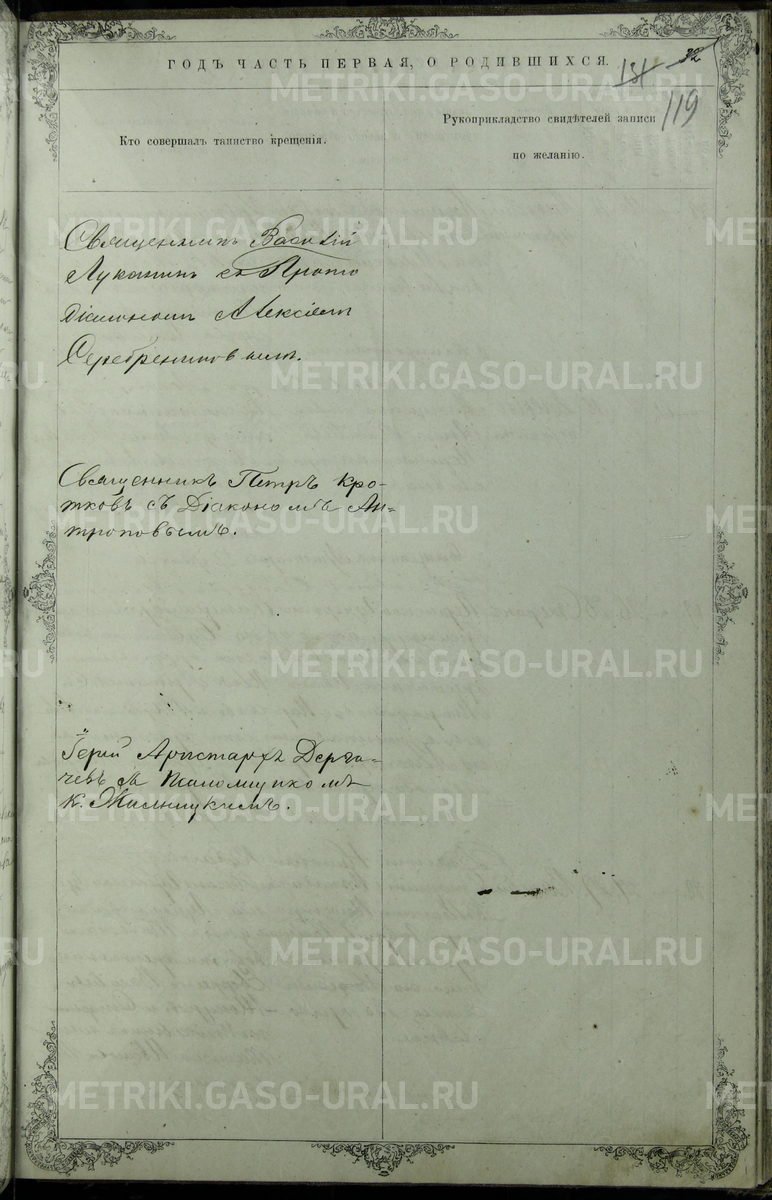 ГОДЪ ЧАСТЬ ПЕРВАЯ, О РОДИВШИХСЯ.
131 32
119
Кто совершалъ таинство крещенія.
Рукоприкладство свидѣтелей записи
по желанію.
Священникъ Василій
Луканинъ съ Прото
діакономъ Алексіемъ
Серебренниковымъ.
Священникъ Петръ Кро-
тковъ съ Діакономъ Ан-
троповымъ.
Іерей Аристархъ Дерга-
чевъ съ Псаломщикомъ
К. Жилицкимъ.
METRIKI.GASO-URAL.RU